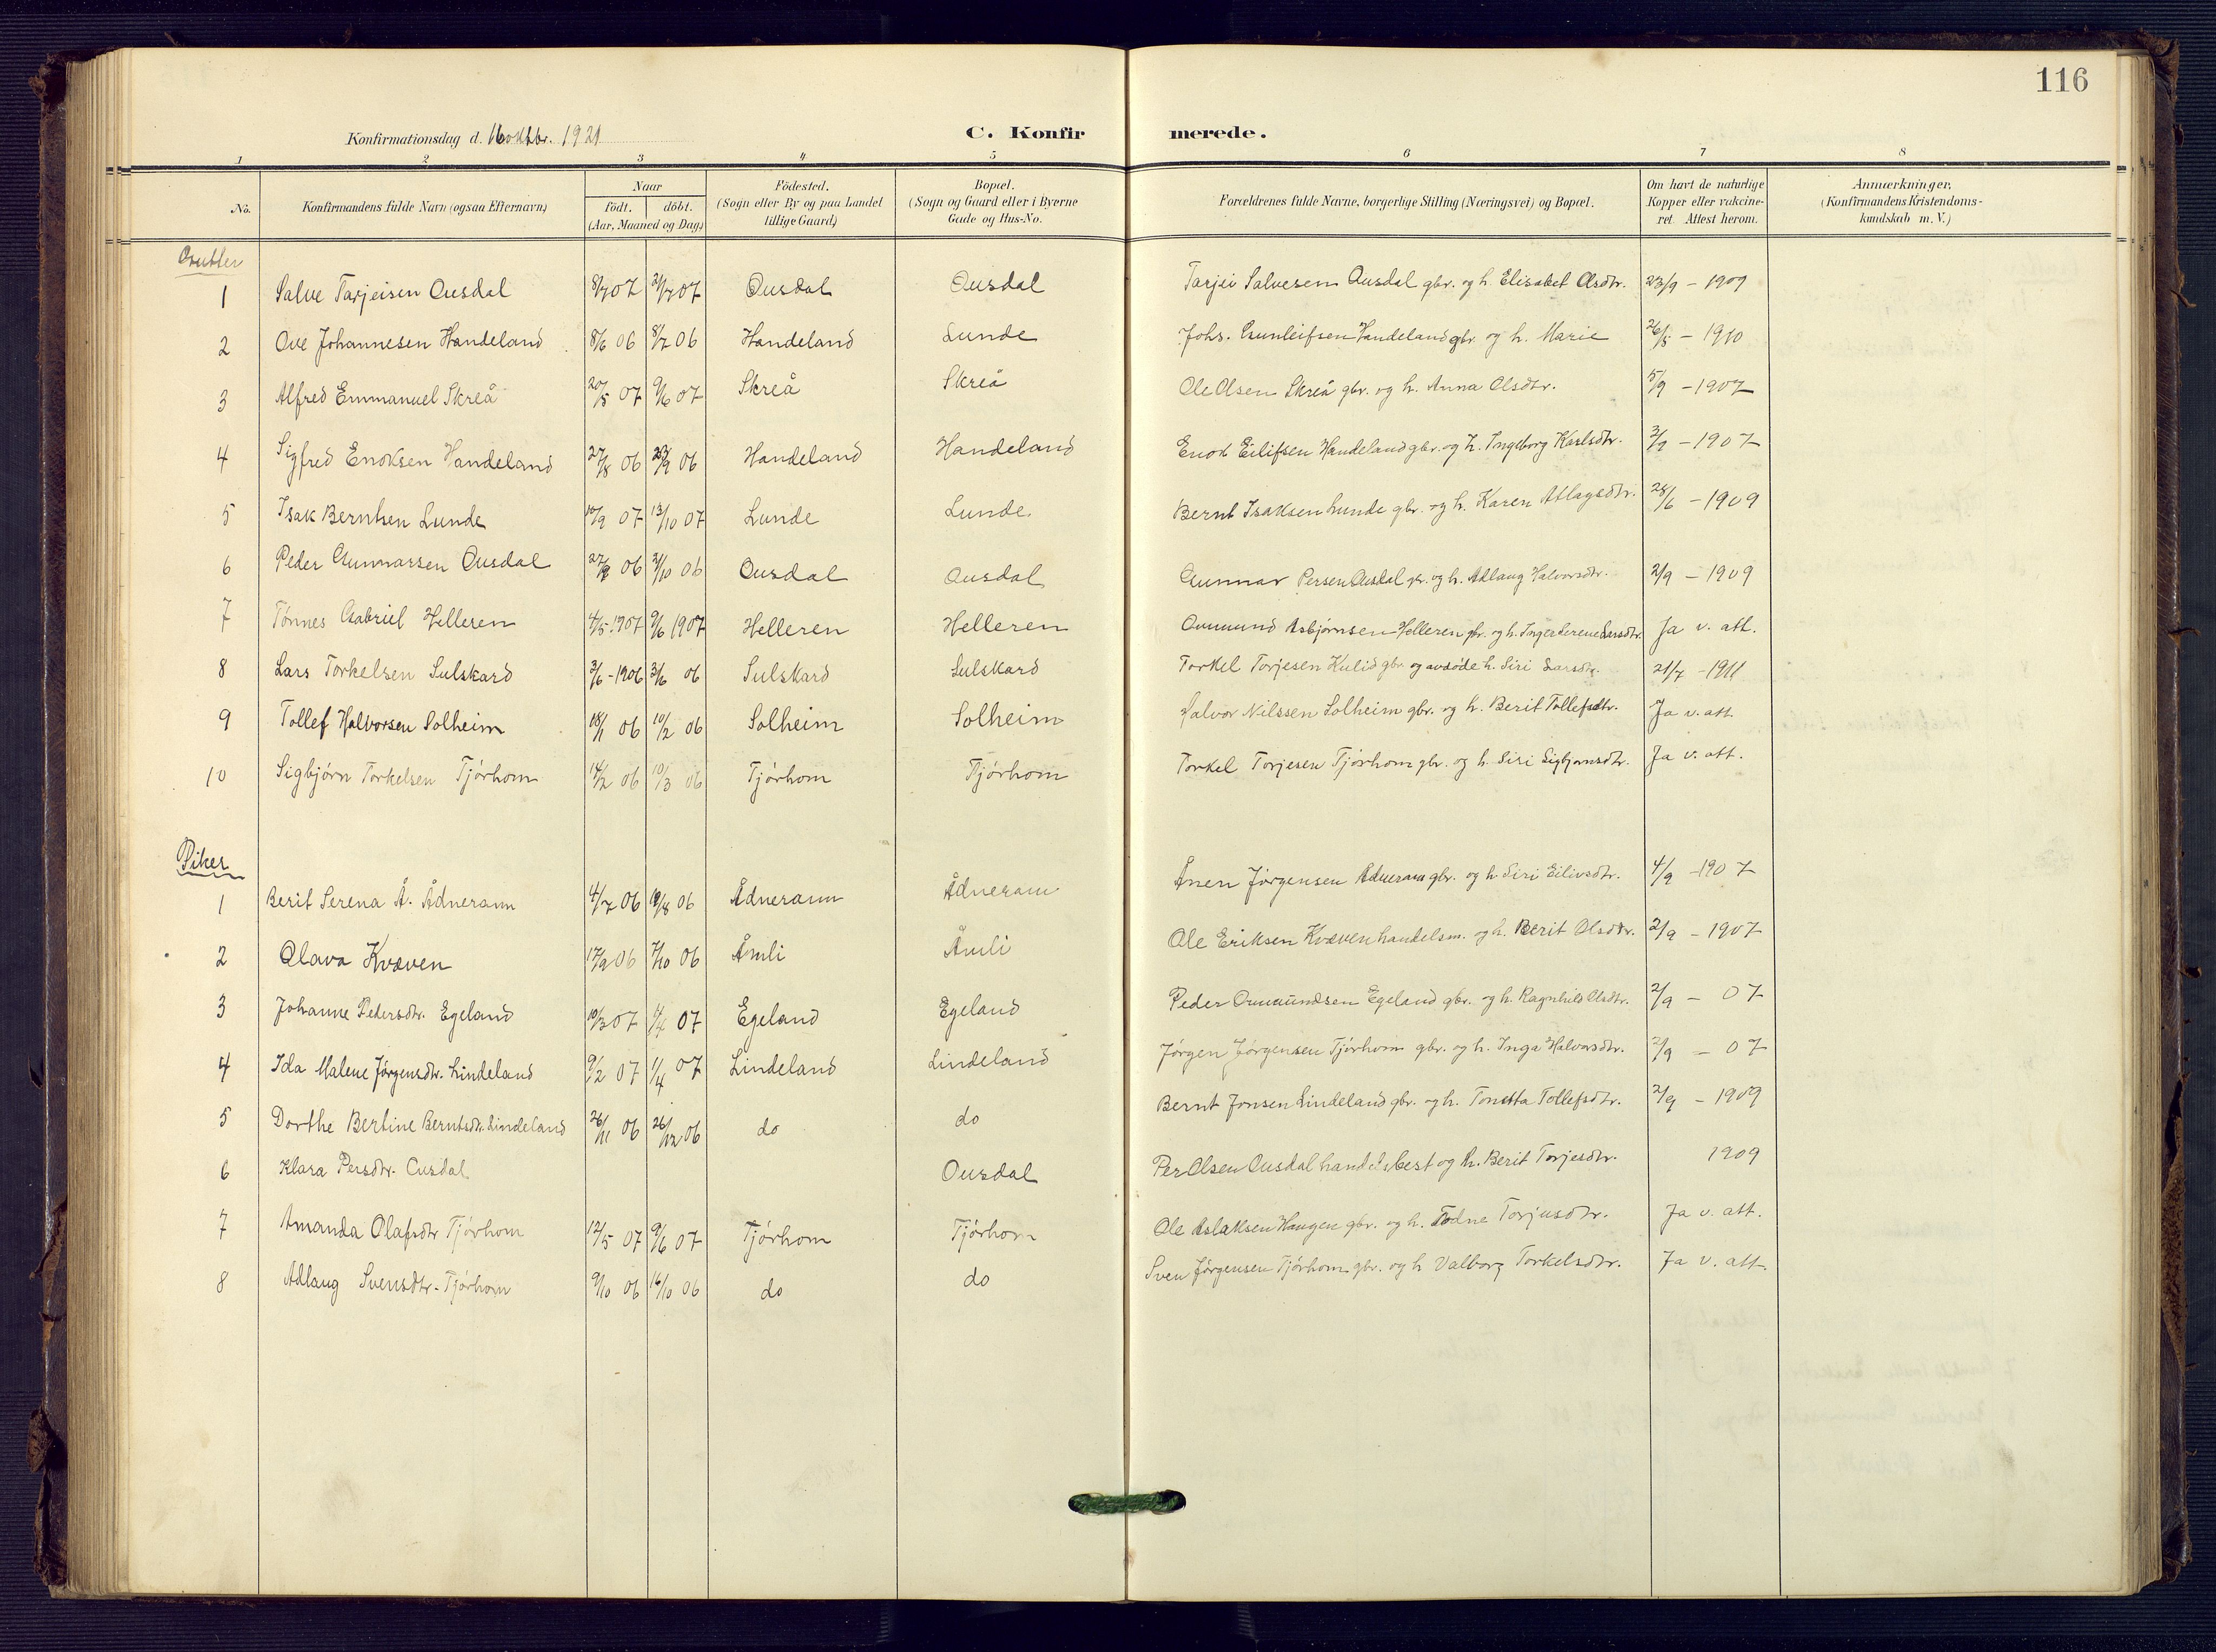 116
Konfirmationsdag d. 16 oktbr. 1921
C. Konfirmerede.
1 2 3 4 5 6 7 8
No.
Konfirmandens fulde Navn (ogsaa Efternavn)
Naar
födt. döbt.
(Aar, Maaned og Dag)
Födested.
(Sogn eller By og paa Landet
tillige Gaard)
Bopæl.
(Sogn og Gaard eller i Byerne
Gade og Hus-No.
Forældrenes fulde Navne, borgerlige Stilling (Næringsvei) og Bopæl.
Om havt de naturlige
Kopper eller vakcine-
ret. Attest herom.
Anmærkninger,
(Konfirmandens Kristendoms-
kundskab m. V.)
Gutter
1 Salve Tarjeisen Ousdal 8/7 07 21/7 07 Ousdal Ousdal Tarjei Salvesen Ousdal gbr. og h. Elisabet Olsdtr. 23/9 - 1909
2 Ove Johannesen Handeland 8/6 06 8/7 06 Handeland Lunde Johs. Gunleifsen Handeland gbr. og h. Marie 26/5 - 1910
3 Alfred Emmanuel Skreå 20/5 07 9/6 07 Skreå Skreå Ole Olsen Skreå gbr. og h. Anna Olsdtr. 5/9 - 1907
4 Sigfred Enoksen Handeland 27/8 06 23/9 06 Handeland Handeland Enok Eilifsen Handeland gbr. og h. Ingeborg Karlsdtr. 3/9 - 1907
5 Isak Berntsen Lunde 10/9 07 13/10 07 Lunde Lunde Bernt Isaksen Lunde gbr. og h. Karen Atlagsdtr. 28/6 - 1909
6 Peder Gunnarsen Ousdal 27/9 06 21/10 06 Ousdal Ousdal Gunnar Persen Ousdal gbr. og h. Adlaug Halvorsdtr. 2/9 - 1909
7 Tønnes Gabriel Helleren 4/5 1907 9/6 1907 Helleren Helleren Ommund Asbjørnsen Helleren gbr. og h. Inger Serene Larsdtr. Ja v. att.
8 Lars Torkelsen Sulskard 3/6 - 1906 3/6 06 Sulskard Sulskard Torkel Torjesen Kulid gbr. og avdøde h. Siri Larsdtr. 21/7 - 1911
9 Tollef Halvorsen Solheim 18/1 06 10/2 06 Solheim Solheim Halvor Nilssen Solheim gbr. og h. Berit Tollefsdtr. Ja v. att.
10 Sigbjørn Torkelsen Tjørhom 14/2 06 10/3 06 Tjørhom Tjørhom Torkel Torjesen Tjørhom gbr. og h. Siri Sigbjørnsdtr. Ja v. att.
Piker
1 Berit Serena Å. Ådneram 4/7 06 19/8 06 Ådneram Ådneram Ånen Jørgensen Ådneram gbr. og h. Siri Eilivsdtr. 4/9 - 1907
2 Olava Kvæven 17/9 06 7/10 06 Åmli Åmli Ole Eriksen Kvæven handelsm. og h. Berit Olsdtr. 2/9 - 1907
3 Johanne Pedersdtr. Egeland 10/3 07 1/4 07 Egeland Egeland Peder Ommundsen Egeland gbr. og h. Ragnhild Olsdtr. 2/9 - 07
4 Ida Malene Jørgensdtr. Lindeland 9/2 07 1/4 07 Lindeland Lindeland Jørgen Jørgensen Tjørhom gbr. og h. Inga Halvorsdtr. 2/9 - 07
5 Dorthe Bertine Berntsdtr. Lindeland 26/11 06 26/12 06 do do Bernt Jonsen Lindeland gbr. og h. Tonetta Tollefsdtr. 2/9 - 1909
6 Klara Persdtr. Ousdal Ousdal Per Olsen Ousdal og h. Berit Torjesdtr. 1909
7 Amanda Olafsdtr Tjørhom 12/5 07 9/6 07 Tjørhom Tjørhom Ole Aslaksen Haugen gbr. og h. Todne Torjusdtr. Ja v. att.
8 Adlaug Svensdtr. Tjørhom 9/10 06 16/10 06 do do Sven Jørgensen Tjørhom gbr. og h Valborg Torkelsdtr. Ja v. att.